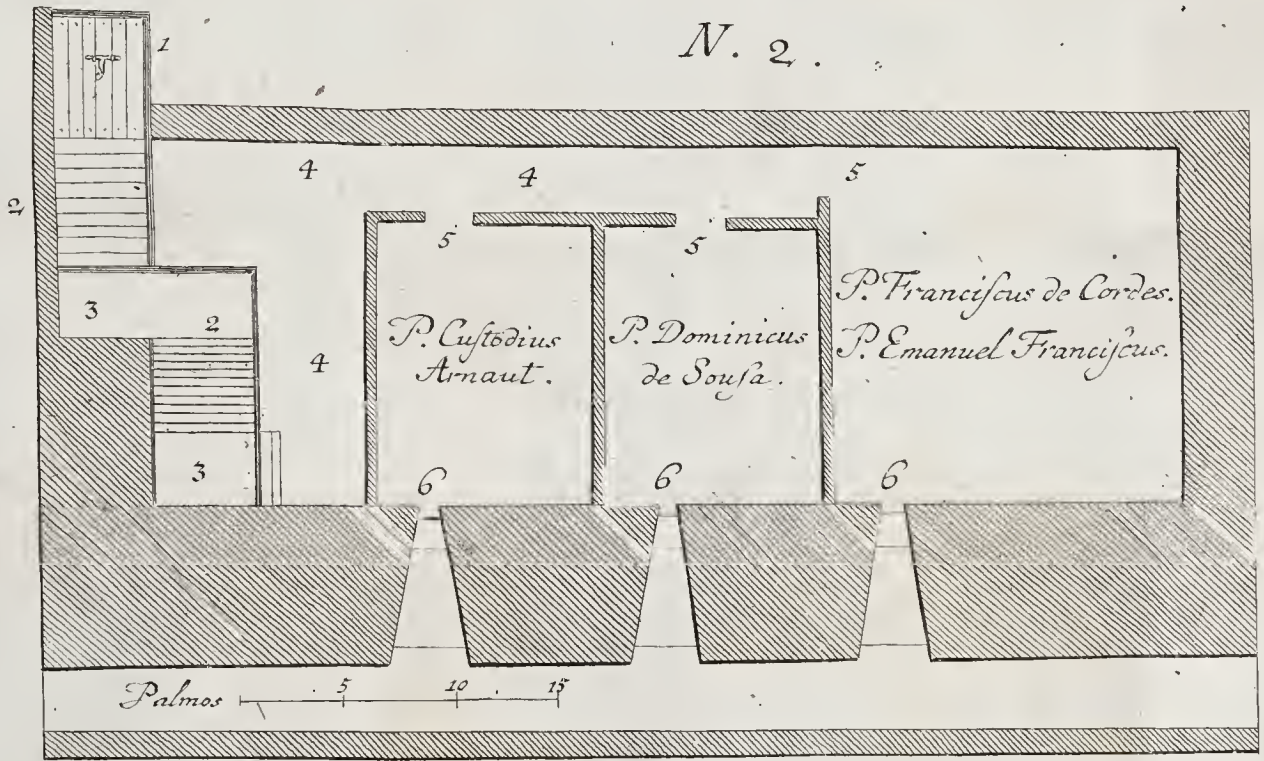 N. 2.
1
2
4
4
5
5
5
3
2
4
P. Cuſtodius
Arnaut.
P. Dominicus
de Souſa.
P. Franciſcus de Cordes.
P. Emanuel Franciſcus.
3
6
6
6
Palmos
5
10
15